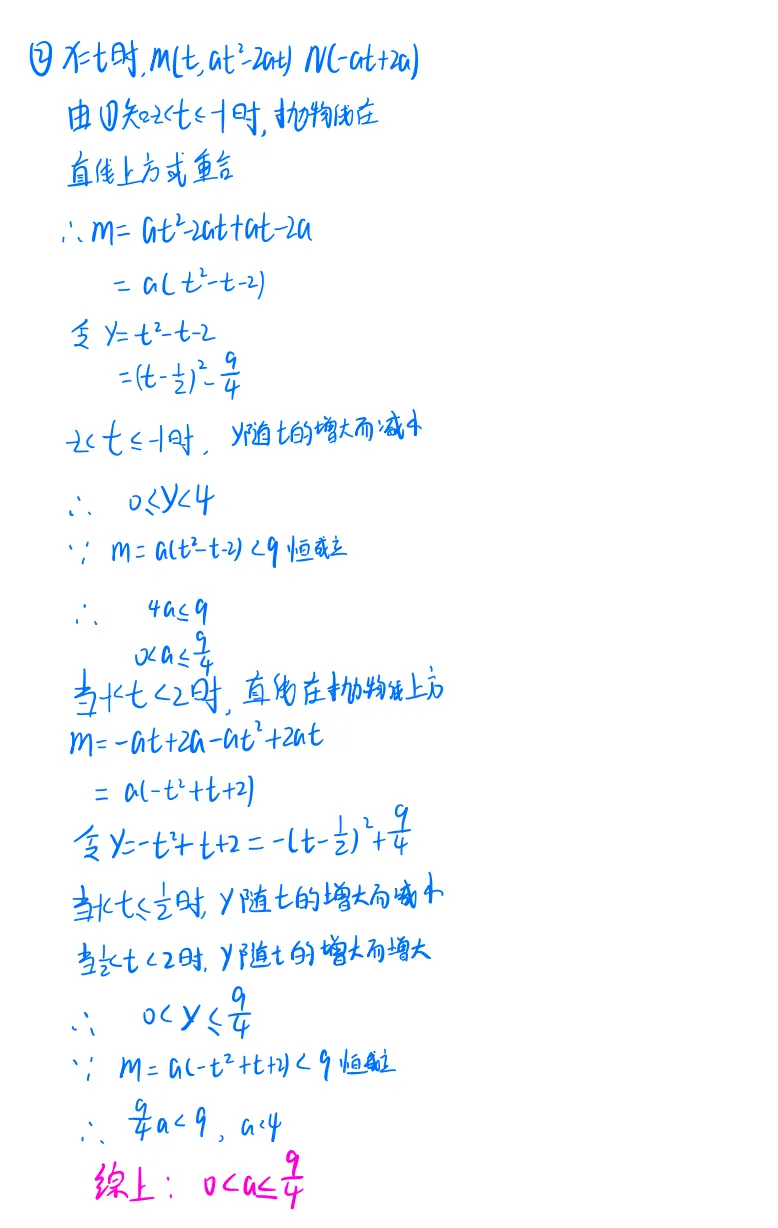 ② x=t时, M(t, at²-2at) N(-at+2a)
由①知-2<t≤-1时, 抛物线在
直线上方或重合
∴ m= at²-2at+at-2a
= a(t²-t-2)
令 y=t²-t-2
=(t-1/2)²-9/4
-2<t≤-1时, y随t的增大而减小
∴ 0≤y<4
∵ m=a(t²-t-2)<9恒成立
∴ 4a≤9
0<a≤9/4
当-1<t<2时, 直线在抛物线上方
m=-at+2a-at²+2at
= a(-t²+t+2)
令y=-t²+t+2=-(t-1/2)²+9/4
当-1<t≤1/2时, y随t的增大而减小
当1/2<t<2时, y随t的增大而增大
∴ 0<y≤9/4
∵ m=a(-t²+t+2)<9恒成立
∴ 9/4a<9, a<4
综上: 0<a≤9/4